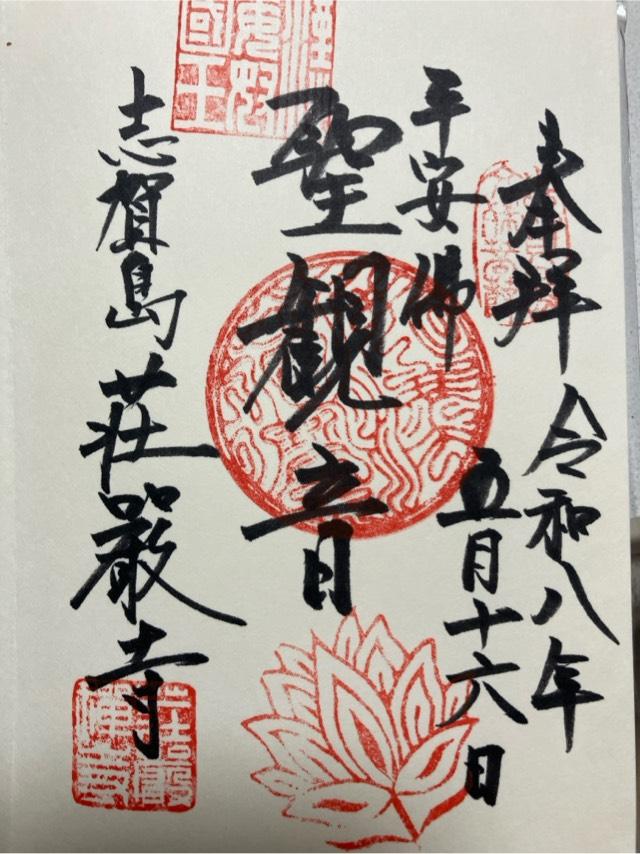 奉拝
令和八年
五月十六日
平安佛
聖観音
志賀島荘厳寺
漢委奴國王